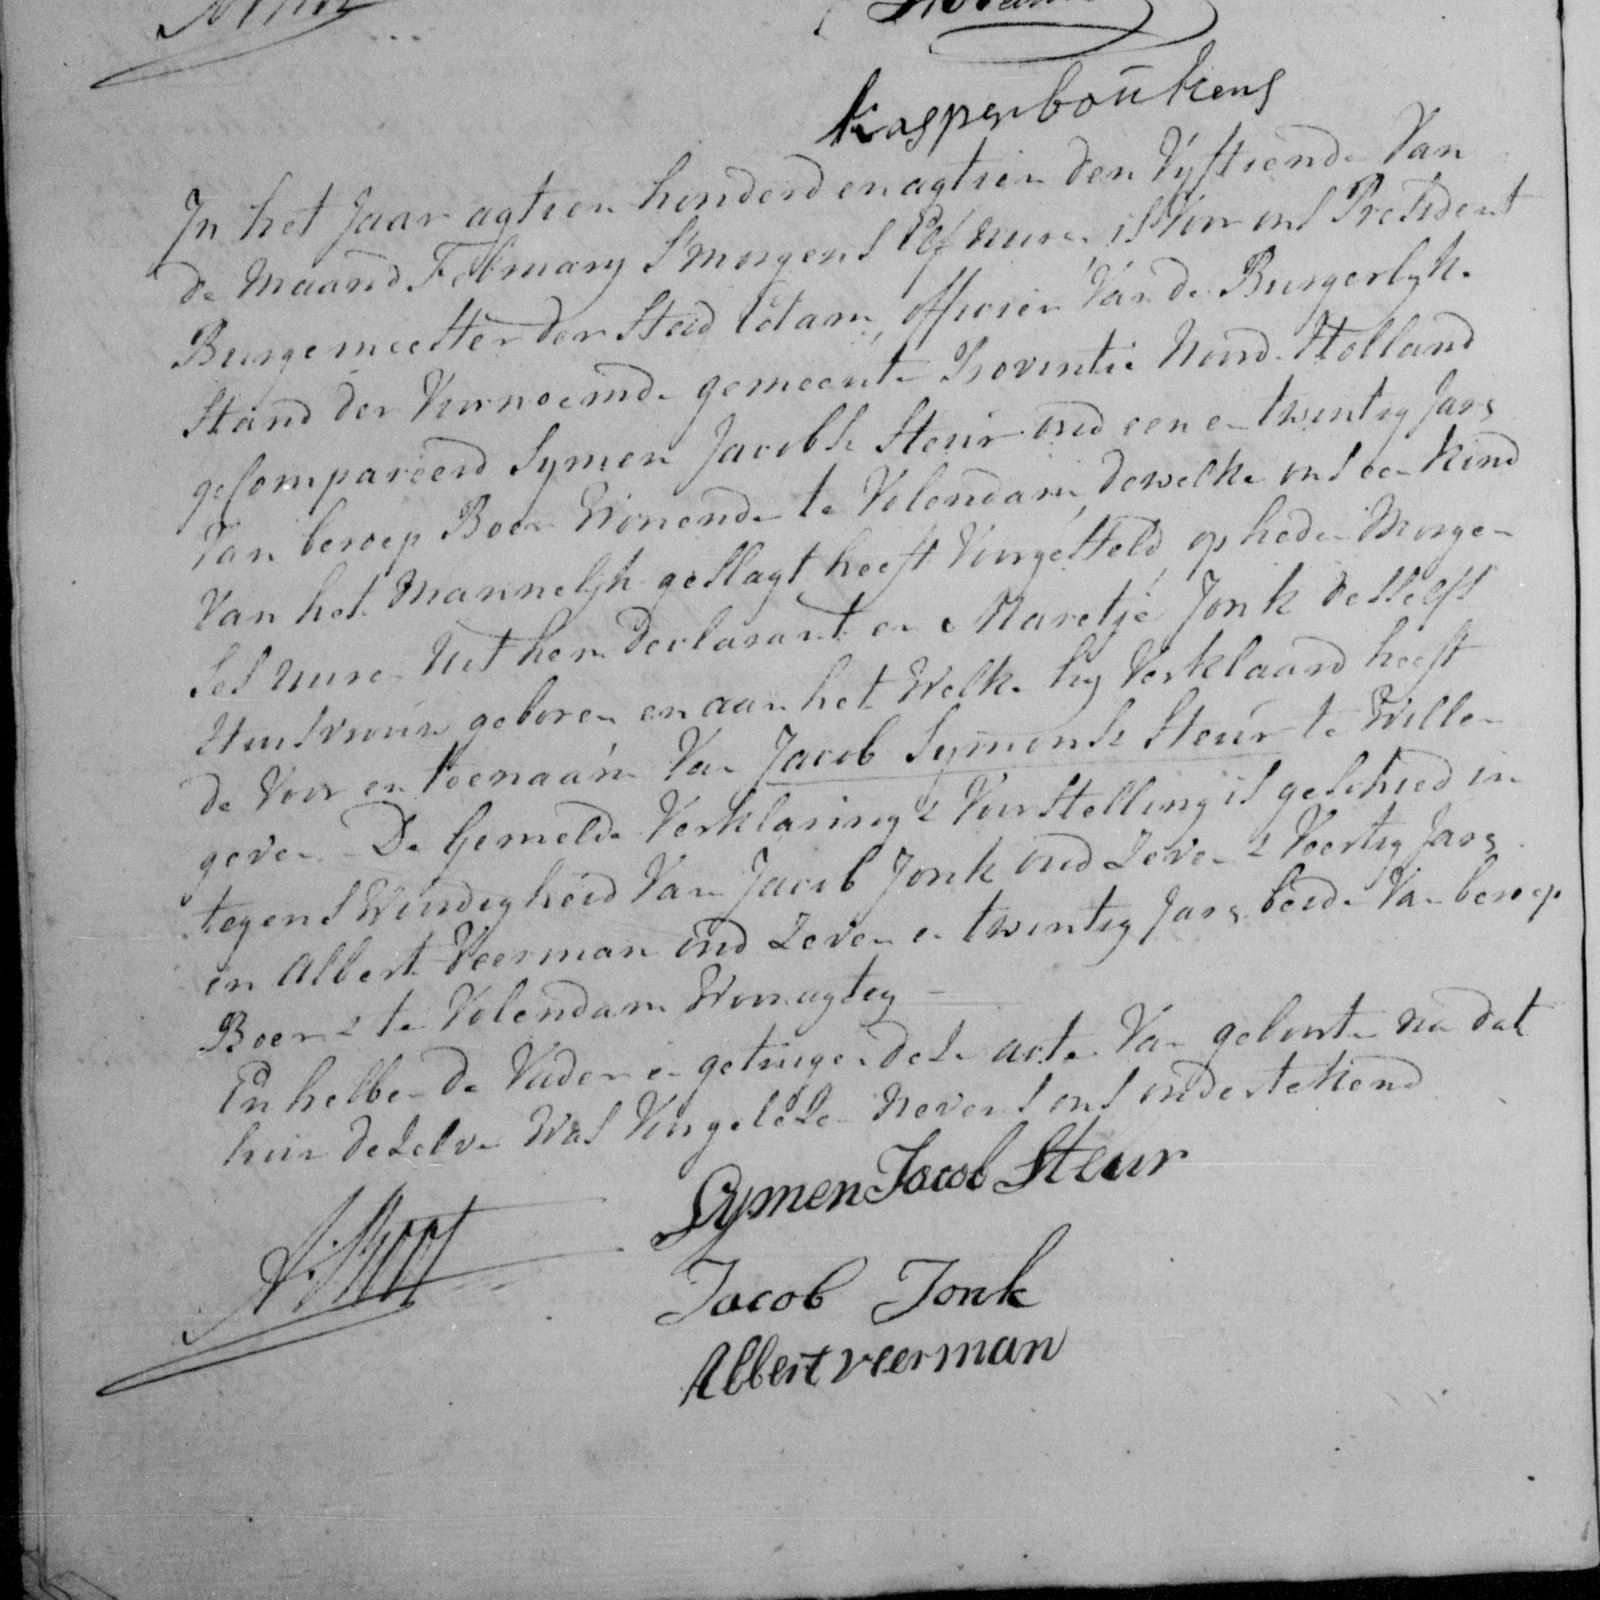 Kasper boükens
In het Jaar agtien honderd en agtien den Vyftiende Van
de Maand February S'morgens Elf uure, is Voor ons President
Burgemeester der Stad Edam, officier Van de Burgerlyke
Stand der Voornoemde gemeente Provintie Noord-Holland
geCompareerd Symen Jacobsz Steur oud een en twintig Jars
Van beroep Boer Wonende te Volendam, dewelke ons een kind
Van het Mannelyk geslagt heeft Voorgesteld, op heden Morgen
Ses uure Uit hem Declarant en Maretje Jonk desselfs
Huisvrouw geboren en aan het Welke hy Verklaard heeft
de Voor en toenaam Van Jacob Symonsz Steur te Wille
geven - De gemelde Verklaring & Voorstelling is geschied in
tegenswoordigheid Van Jacob Jonk oud Zeven & Veertig Jars
en Albert Veerman oud Zeven en twintig Jars beide Van beroep
Boer & te Volendam Woonagtig -
En hebben de Vader en getuigen deze acte Van geboorte na dat
hun dezelve Was Voorgeleze Nevens ons ondertekend
Symen Jacob Steur
Jacob Jonk
Albert veerman